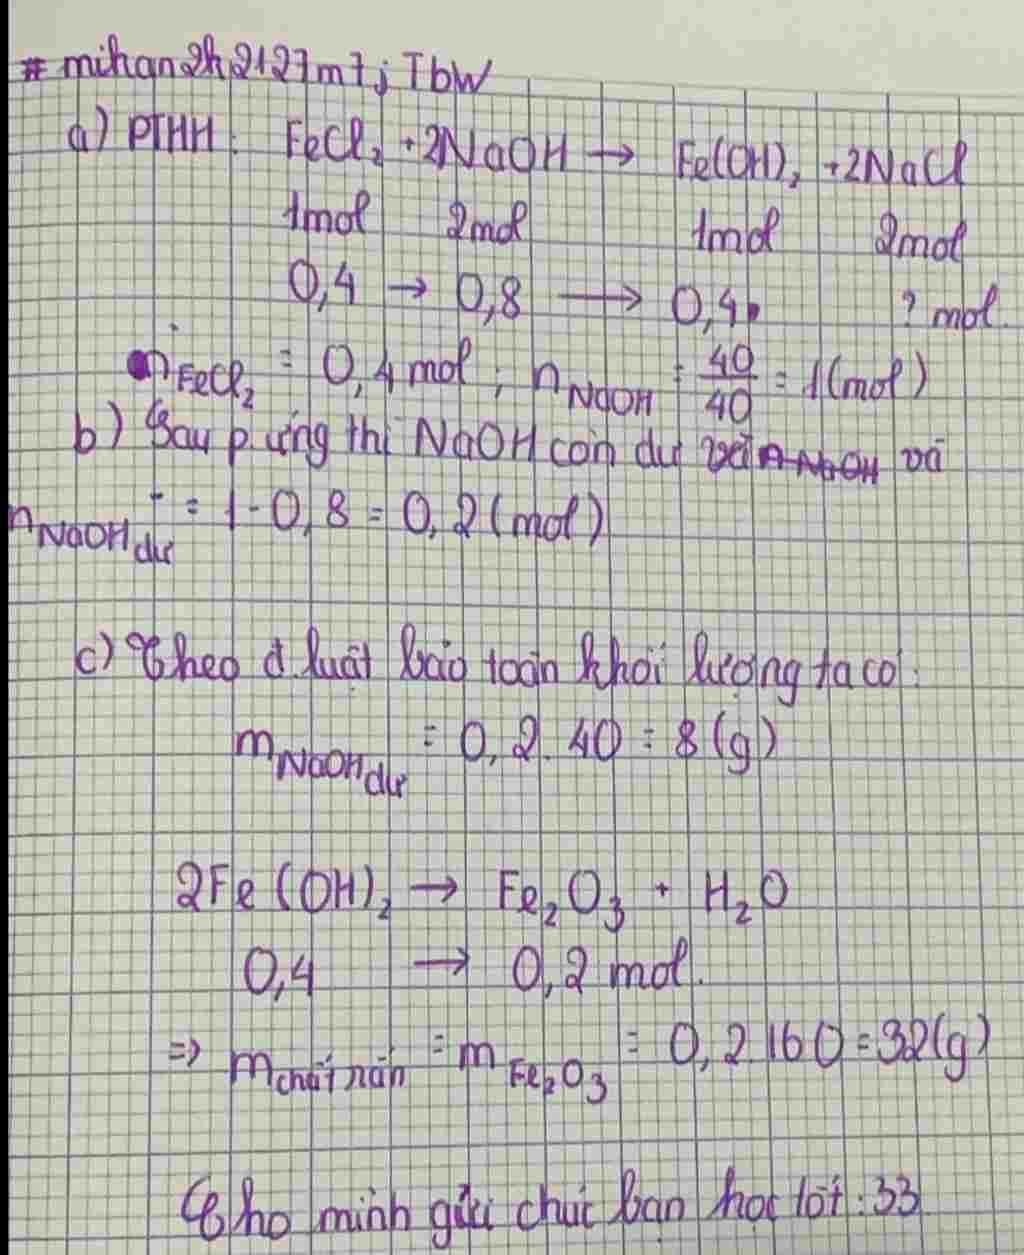 # mihan2h2127m7j TbW
a) PTHH: FeCl₂ + 2NaOH → Fe(OH)₂ + 2NaCl
1mol 2mol 1mol 2mol
0,4 → 0,8 → 0,4 ? mol.
n FeCl₂ = 0,4 mol ; n NaOH = 40/40 = 1(mol)
b) Sau p.ứng thì NaOH còn dư và
n NaOH dư = 1 - 0,8 = 0,2 (mol)
c) Theo đ.luật bảo toàn khối lượng ta có:
m NaOH dư = 0,2 . 40 = 8 (g)
2Fe(OH)₂ → Fe₂O₃ + H₂O
0,4 → 0,2 mol.
=> m chất rắn = m Fe₂O₃ = 0,2.160 = 32(g)
Cho mình gửi chúc bạn học tốt :33